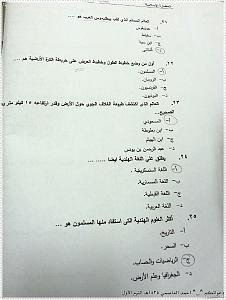 الحضارة الإسلامية
٢١. العالم المسلم الذي لقب ببطليموس العرب هو ...
أ- جوينبوس
ب- سقراط
ج- ابن سينا
د- البتاني
٢٢. أول من وضع خطوط الطول وخطوط العرض على خريطة الكرة الأرضية هم ...
أ- المسلمون.
ب- الرومان.
ج- الفرنسيون.
د- اليونانيون.
٢٣. العالم الذي اكتشف طبيعة الغلاف الجوي حول الأرض وقدر ارتفاعه ١٥ كيلو متر ب
الصحيح...
أ- المسعودي
ب- ابن بطوطة
ج- ابن الهيثم
د- عبد الرحمن بن يونس
٢٤. يطلق على اللغة الهندية أيضا .....
أ- اللغة السنسكريتية.
ب- اللغة المسمارية.
ج- اللغة القبطية.
د- اللغة العربية.
٢٥. أكثر العلوم الهندية التي استفاد منها المسلمون هو ...
أ- التاريخ.
ب- السحر.
ج- الرياضيات والحساب.
د- الجغرافيا وعلم الأرض.
١٤٣٥هـ الترم الأول